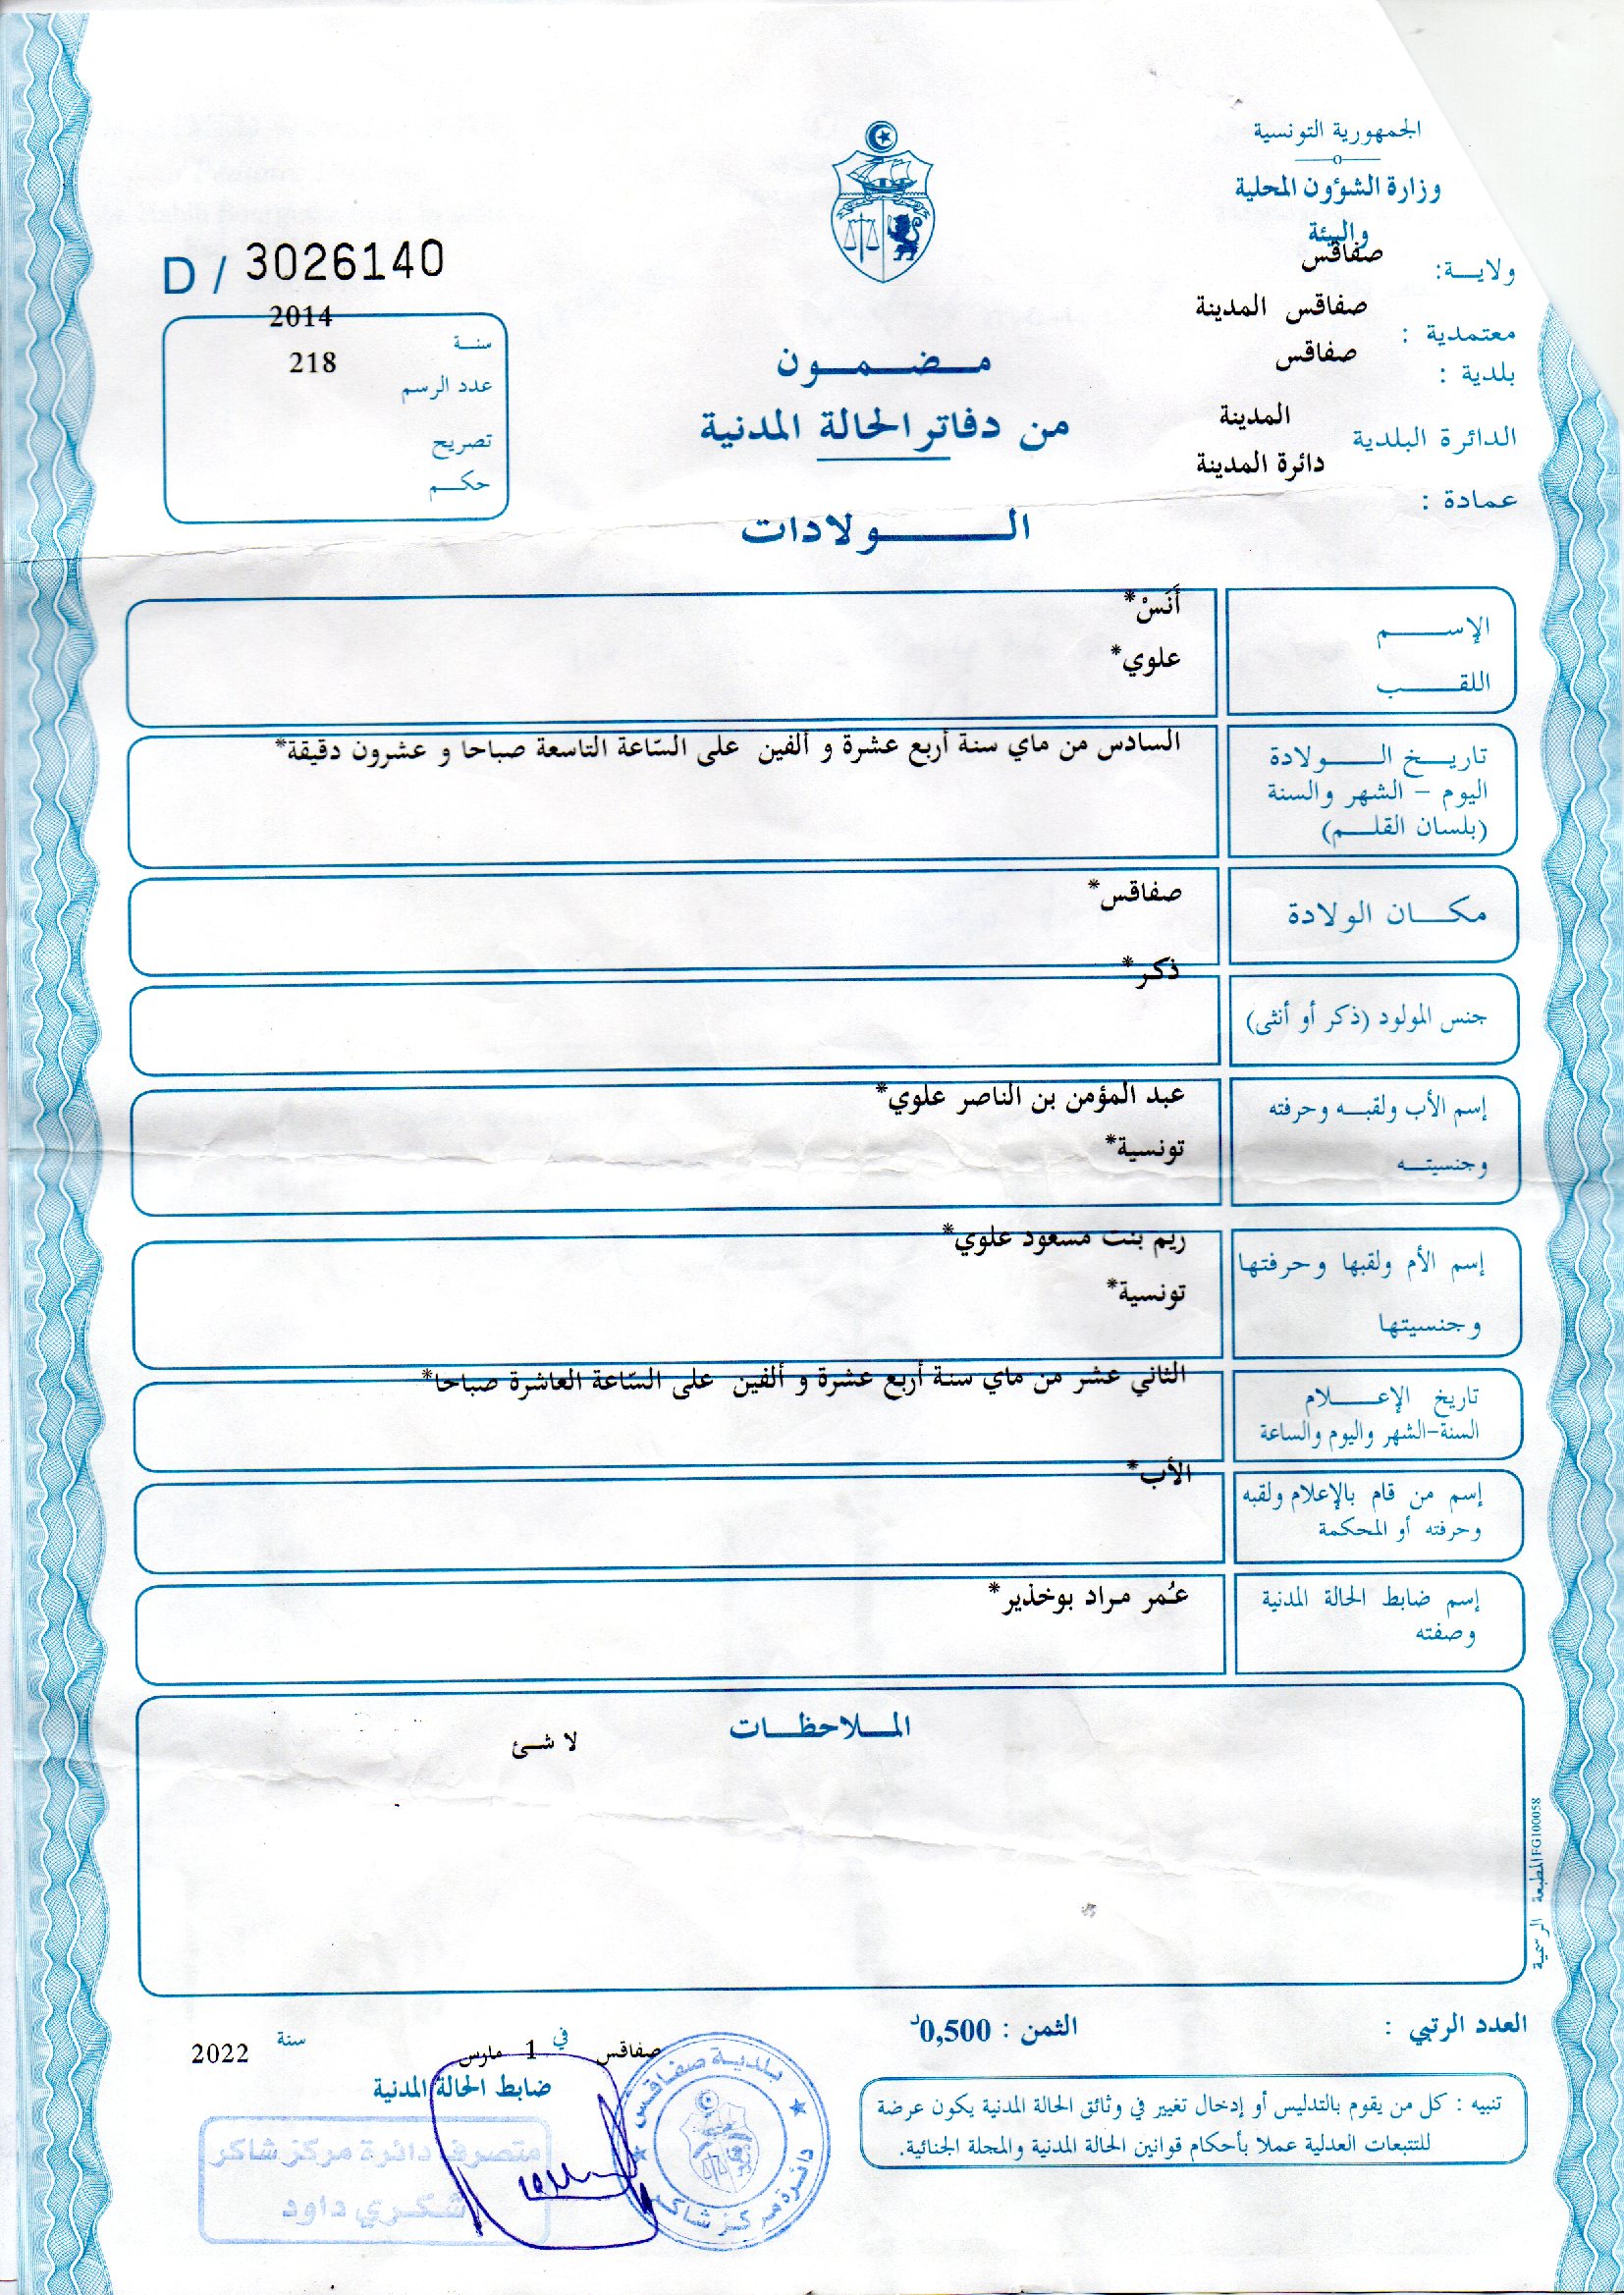 الجمهورية التونسية
وزارة الشؤون المحلية
والبيئة
ولاية: صفاقس
معتمدية : صفاقس المدينة
بلدية : صفاقس
الدائرة البلدية المدينة
دائرة المدينة
عمادة :
D / 3026140
سنة 2014
عدد الرسم 218
تصريح
حكم
مضمون
من دفاتر الحالة المدنية
الولادات
الإسم أَنَسْ*
اللقب علوي*
تاريخ الولادة السادس من ماي سنة أربع عشرة و ألفين على السّاعة التاسعة صباحا و عشرون دقيقة*
اليوم - الشهر والسنة
(بلسان القلم)
مكان الولادة صفاقس*
جنس المولود (ذكر أو أنثى) ذكر*
إسم الأب ولقبه وحرفته عبد المؤمن بن الناصر علوي*
وجنسيته تونسية*
إسم الأم ولقبها وحرفتها ريم بنت مسعود علوي*
وجنسيتها تونسية*
تاريخ الإعلام الثاني عشر من ماي سنة أربع عشرة و ألفين على السّاعة العاشرة صباحا*
السنة-الشهر واليوم والساعة
إسم من قام بالإعلام ولقبه الأب*
وحرفته أو المحكمة
إسم ضابط الحالة المدنية عُمر مراد بوخذير*
وصفته
الملاحظات
لا شئ
المطبعة الرسمية FG100058
العدد الرتبي :
الثمن : 0,500د
صفاقس في 1 مارس سنة 2022
ضابط الحالة المدنية
متصرف دائرة مركز شاكر
شكري داود
بلدية صفاقس
دائرة مركز شاكر
تنبيه : كل من يقوم بالتدليس أو إدخال تغيير في وثائق الحالة المدنية يكون عرضة
للتتبعات العدلية عملا بأحكام قوانين الحالة المدنية والمجلة الجنائية.